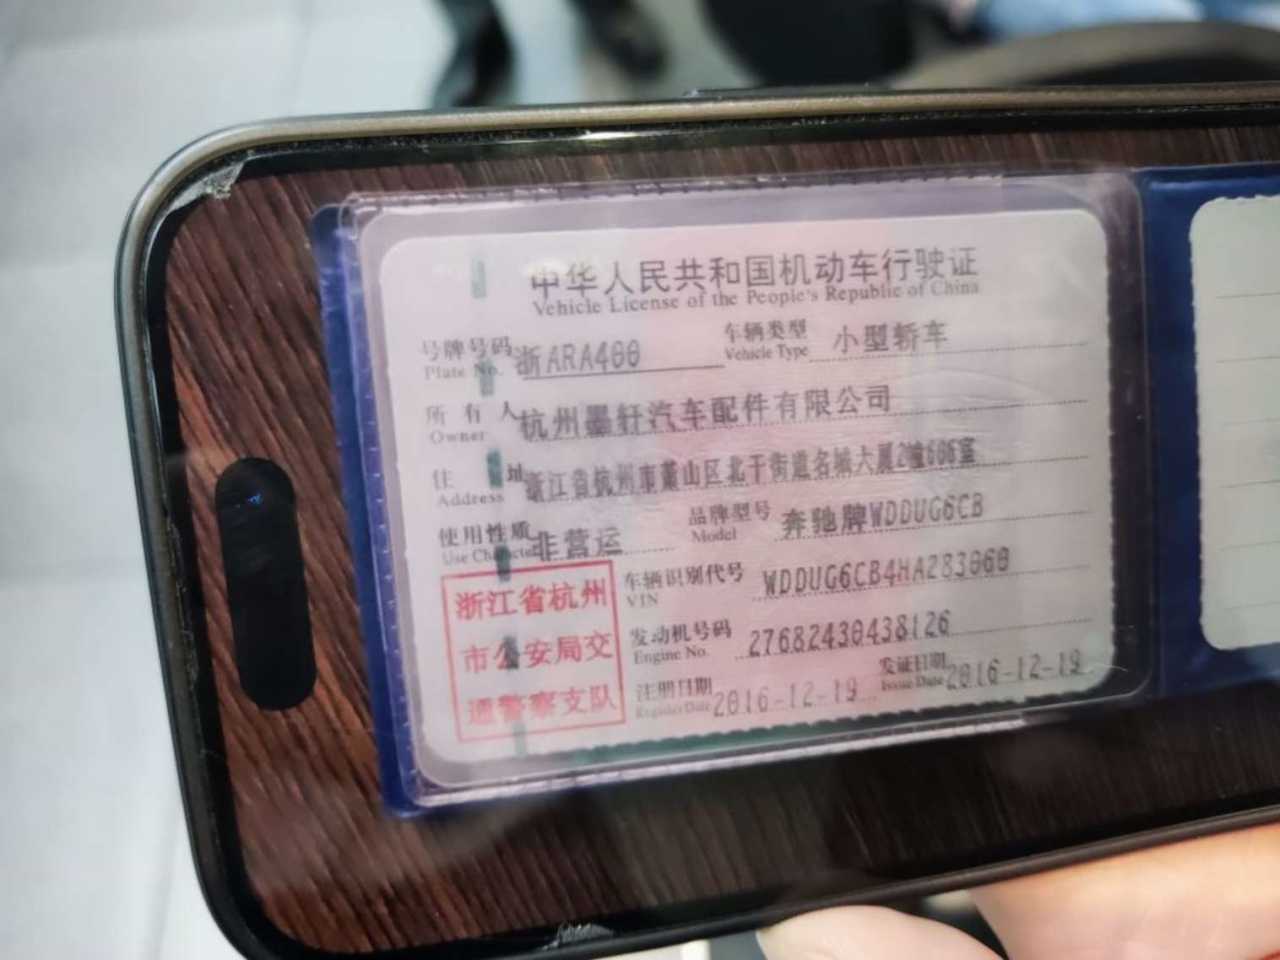 中华人民共和国机动车行驶证
Vehicle License of the People's Republic of China
号牌号码 浙ARA400 车辆类型 小型轿车
Plate No. Vehicle Type
所有人 杭州墨轩汽车配件有限公司
Owner
住址 浙江省杭州市萧山区北干街道名城大厦2幢606室
Address
使用性质 非营运 品牌型号 奔驰牌WDDUG6CB
Use Characte Model
浙江省杭州
市公安局交
通警察支队
车辆识别代号 WDDUG6CB4HA283060
VIN
发动机号码 27682430438126
Engine No.
注册日期 2016-12-19 发证日期 2016-12-19
Register Date Issue Date